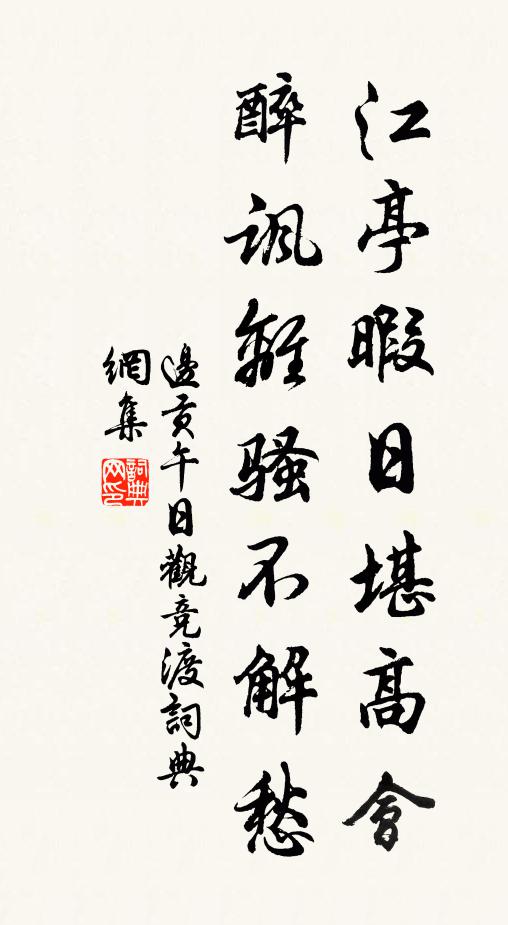 江亭暇日堪高會
醉諷離騷不解愁
邊貢午日觀竞渡詞典
網集
詞典
网印